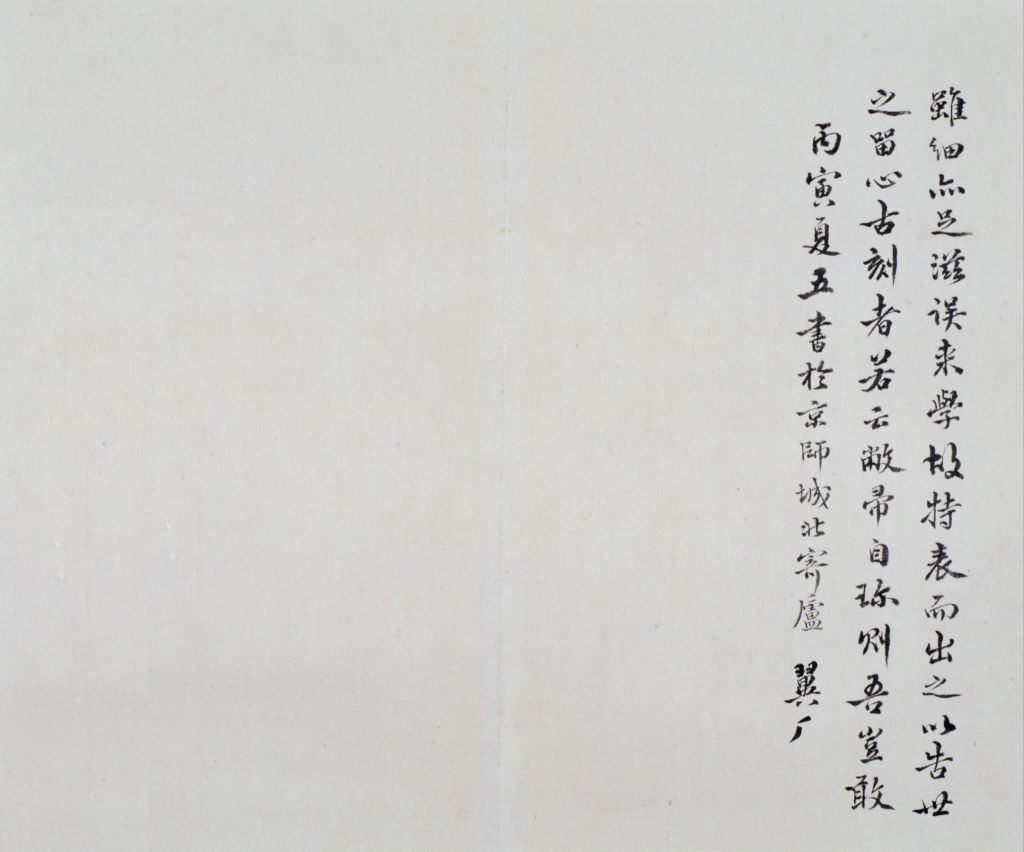 雖細亦足滋误来學故特表而出之以告世
之留心古刻者若云敝帚自珎则吾豈敢
丙寅夏五書於京師城北寄廬 翼厂